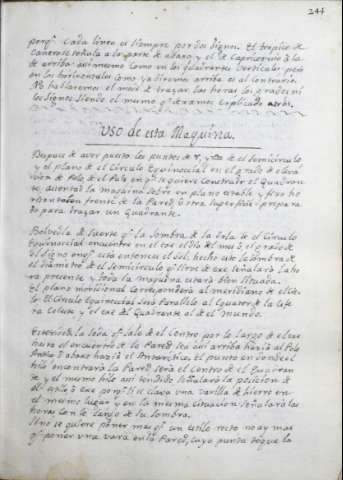 244
porq̃ cada linea es siempre por dos signos. El tropico de
Cancro se señala a la parte de abaxo, y el de Capricornio a la
de arriba: assi mismo como en los quadrantes Verticales, pero
en los horizontales como ya diximos arriba es al contrario.
No hablaremos el modo de trazar las horas los grados ni
los signos siendo el mismo q̃ dexamos explicado atras.
Uso de esta Maquina.
Despues de aver puesto los puntos de ♈, y ♎ de el semicirculo
y el plano de el Circulo Equinoccial en el grado de eleva
cion de Polo de el Pole en q̃ se quiere Construir el Quadran
te, assentad la maquina sobre un plano estable y fixo
frente de la Pared, o otra superficie prepara
da para trazar un Quadrante.
Bolvedla de suerte q̃ la sombra de la bola de el Circulo
Equinoccial encuentre en el exe el dia del mes o el grado de
el signo en q̃ esta entonces el sol, hecho esto la sombra de
el diametro de el semicirculo q̃ sirve de exe señalara la ho
ra presente y toda la maquina estara bien situada.
El plano meridional correspondera al meridiano de el Cie
lo: El Circulo Equinoccial sera Parallelo al Equator de la esfe
ra Celeste y el exe del Quadrante al de el mundo.
Estended la seda q̃ sale de el Centro por lo largo de el exe
hasta el encuentro de la Pared sea assi arriba hazia el Polo
o abaxo hazia el Antarctico. El punto en donde el
hilo encontrara la Pared sera el Centro de el Quadran
te, y el mismo hilo assi tendido señalara la posicion de
el estilo o exe porq̃ si se clava una varilla de hierro en
el mismo lugar y en la misma situacion señalara las
horas con lo largo de su sombra.
Si no se quiere poner mas q̃ un estilo recto no ay mas
q̃ poner una vara en la Pared, cuya punta toque la